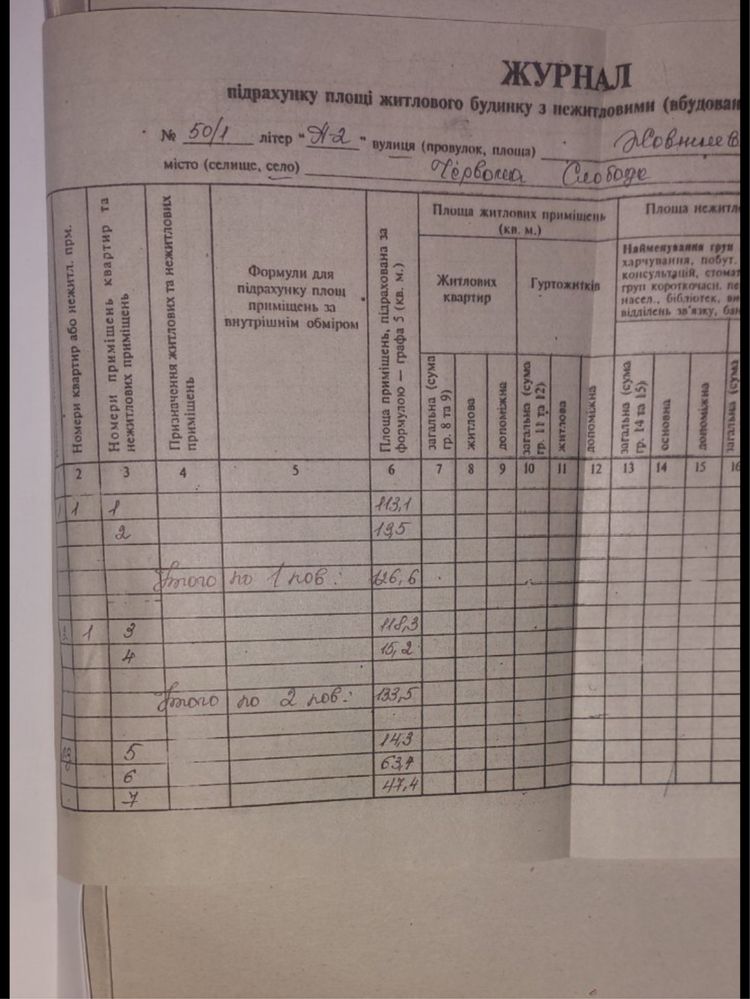 ЖУРНАЛ
підрахунку площі житлового будинку з нежитловими (вбудован
№ 50/1 літер "А-2" вулиця (провулок, площа)
місто (селище, село) Червона Слобода
Номери квартир або нежитл. прм.
Номери приміщень квартир та нежитлових приміщень
Призначення житлових та нежитлових приміщень
Формули для
підрахунку площ
приміщень за
внутрішнім обміром
Площа приміщень, підрахована за
формулою — графа 5 (кв. м.)
Площа житлових приміщень
(кв. м.)
Житлових
квартир
Гуртожитків
загальна (сума
гр. 8 та 9)
житлова
допоміжна
загальна (сума
гр. 11 та 12)
житлова
допоміжна
Площа нежитл
Найменування груп
харчування, побут.
консультацій, стомат
груп короткочасн. пе
насел., бібліотек, ви
відділень зв'язку, бан
загальна (сума
гр. 14 та 15)
основна
допоміжна
загальна (сума
2 3 4 5 6 7 8 9 10 11 12 13 14 15 16
1 1 113,1
2 13,5
Итого по 1 пов: 126,6
1 3 118,3
4 15,2
Итого по 2 пов: 133,5
5 14,3
6 63,7
7 47,4